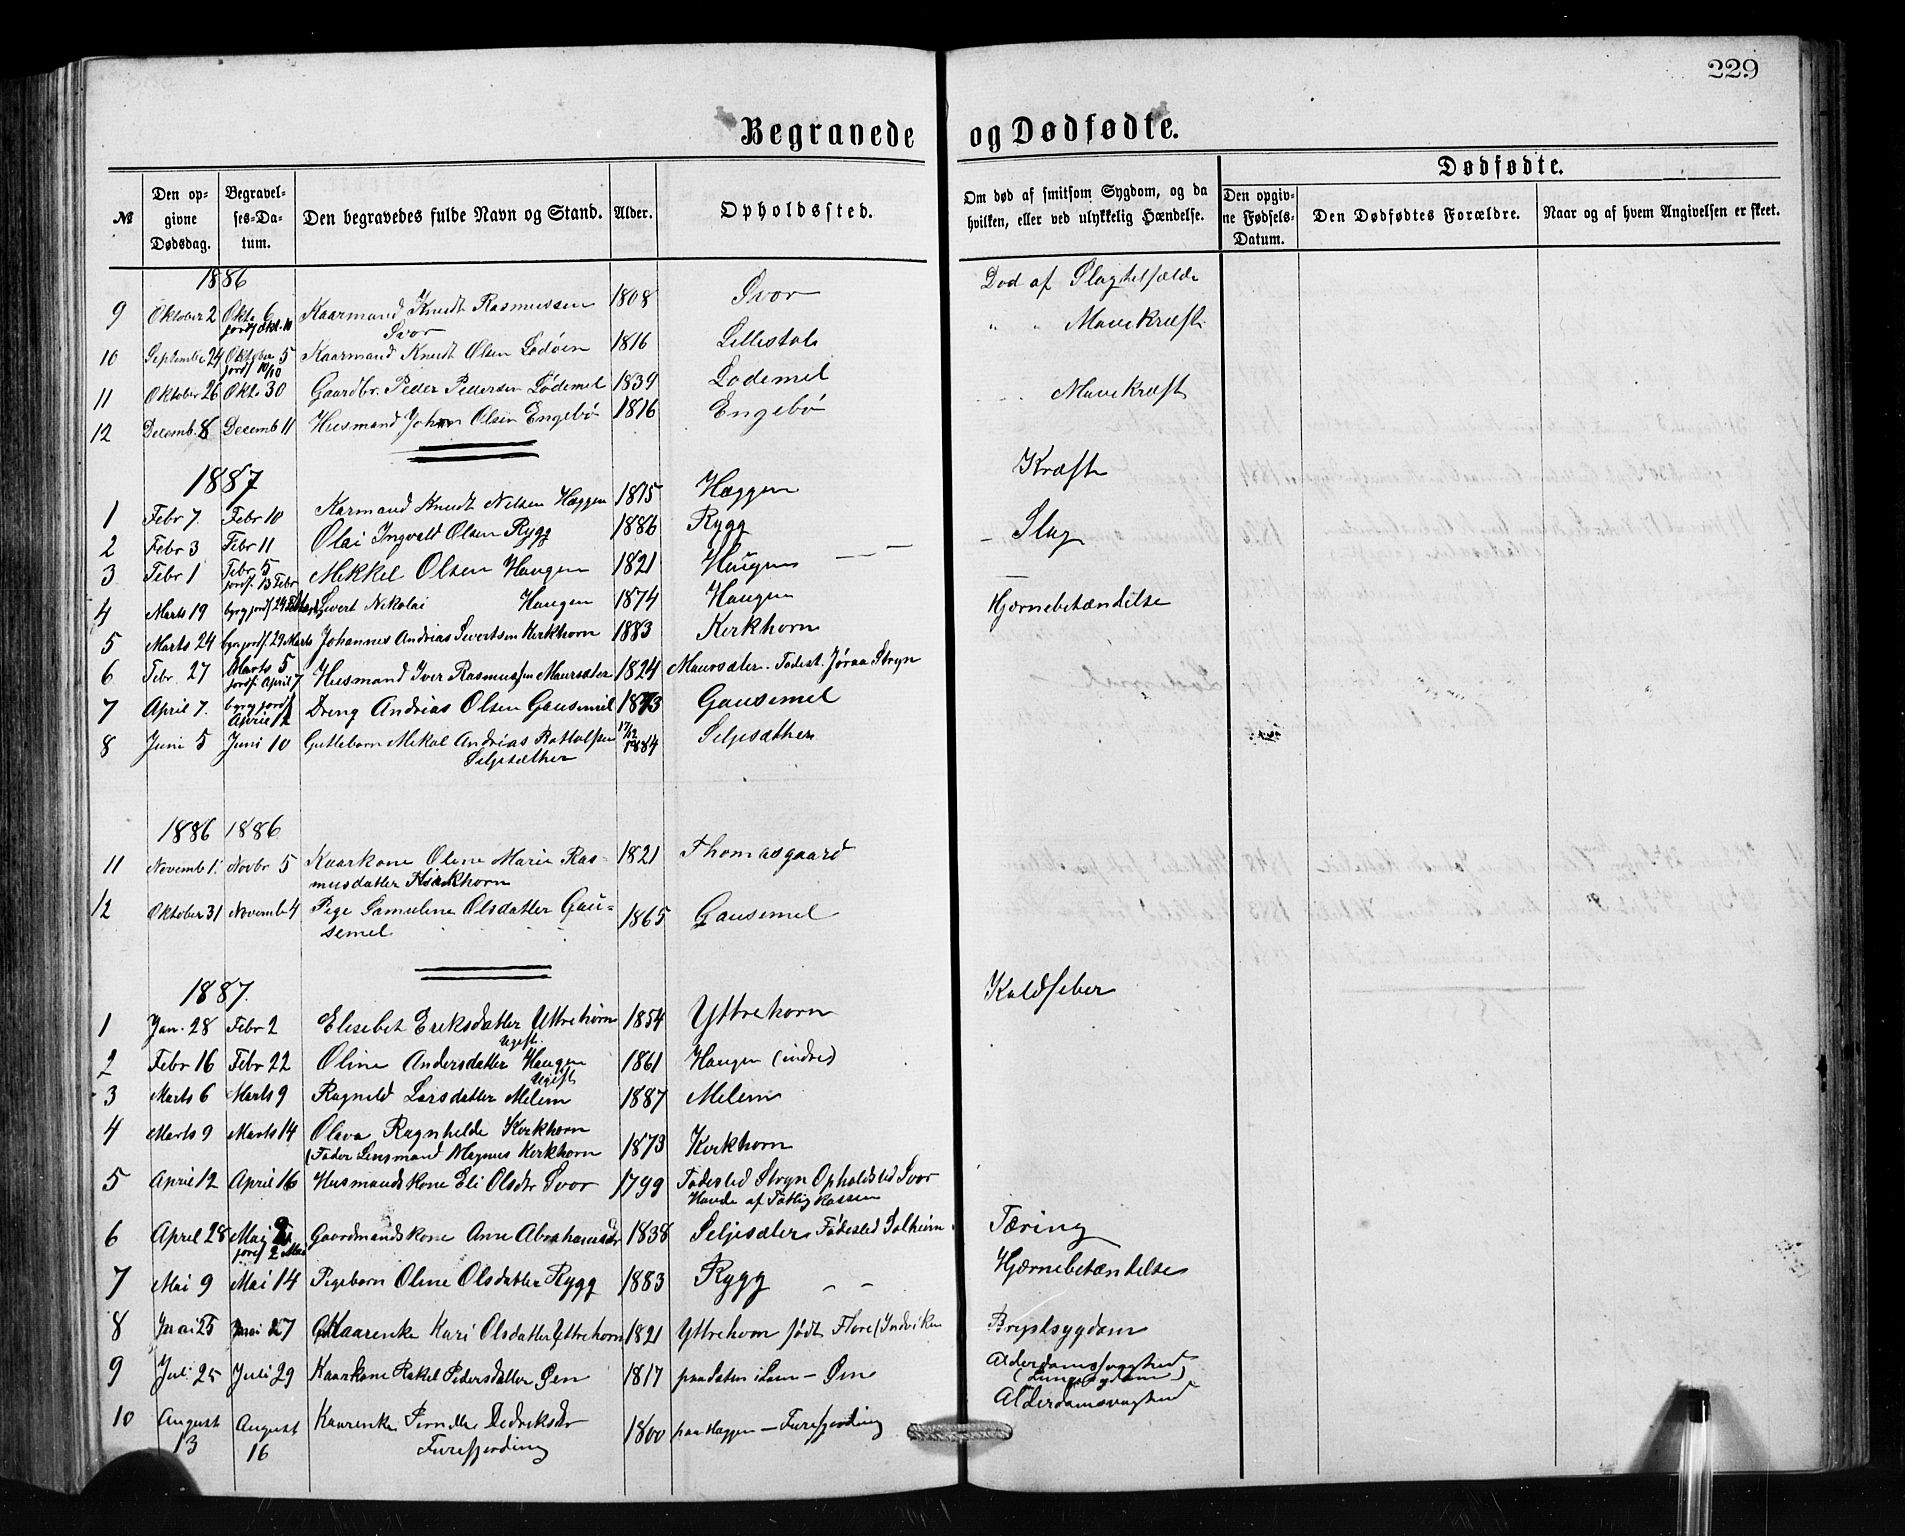 229
Begravede og Dødfødte.
№ Den opgivne Dødsdag. Begravelses-Datum. Den begravedes fulde Navn og Stand. Alder. Opholdssted. Om død af smitsom Sygdom, og da hvilken, eller ved ulykkelig Hændelse. Dødfødte. Den opgivne Fødsels-Datum. Den Dødfødtes Forældre. Naar og af hvem Angivelsen er skeet.
1886
9 Oktober 2 Oktr 6 jordf Okt. 10 Kaarmand Knudt Rasmussen Svor 1808 Svor Død af Slagtilfælde
10 September 24 Oktober 5 jordf 10/10 Kaarmand Knudt Olsen Lodøen 1816 Lillestøl " " Mavekræft
11 Oktober 26 Oktr 30 Gaardbr. Peder Pedersen Lødemel 1839 Lodemel
12 Decemb. 8 Decemb 11 Husmand Johan Olsen Engebø 1816 Engebø Mavekræft
1887
1 Febr 7. Febr 10 Karmand Knudt Nilsen Hæggen 1815 Hæggen Kræft
2 Febr 3 Febr 11 Olai Ingvald Olsen Rygg 1886 Rygg
3 Febr 1 Febr 5 jordf. 13 Febr Mikkel Olsen Haugen 1821 Haugen — — — Slag
4 Marts 19 Sivert Nikolai Haugen 1874 Haugen Hjernebetændelse
5 Marts 24 29 Marts Johannes Andrias Sivertsen Kirkhorn 1883 Kirkhorn
6 Febr. 27 Marts 5 jordf. April 7 Husmand Iver Rasmussen Maursæter 1824 Maursæter. Fødest. Jøraa Stryn
7 April 7. April 12 Dreng Andrias Olsen Gausemel 1873 Gausemel
8 Juni 5 Juni 10 Guttebarn Mikal Andrias Seljesæther 17/12 1884 Seljesæther
1886 1886
11 Novemb 1. Novbr 5 Kaarkone Oline Marie Rasmusdatter Kirkhorn 1821 Thomasgaard
12 Oktober 31 Novemb 4 Pige Samuline Olsdatter Gausemel 1865 Gausemel
1887.
1 Jan. 28 Febr 2 Elisebet Eriksdatter Yttrehorn ugift 1854 Yttrehorn Koldfeber
2 Febr 16 Febr 22 Oline Andersdatter Haugen ugift 1861 Haugen (indre)
3 Marts 6 Marts 9 Ragnild Larsdatter Melem 1887 Melem
4 Marts 9 Marts 14 Olava Ragnhilde Kirkhorn
(Fader Lensmand Magnus Kirkhorn 1873 Kirkhorn
5 April 12 April 16 Husmandskone Eli Olsdtr Svor 1799 Fødested Stryn Opholdsted Svor
Havde af Fattigkassen
6 April 28 Mai jordf 2 Mai Gaardmandskone Anne Abrahamsdtr 1838 Seljesæter Fødested Solheim Tæring
7 Mai 9 Mai 14 Pigebarn Oline Olsdatter Rygg 1883 Rygg — — Hjernebetændelse
8 Mai 25 Mai 27 Kaarenke Kari Olsdatter Yttrehorn 1821 Yttrehorn født Flore (Indviken Brystsygdom
9 Juli 25 Juli 29 Kaarkone Rakel Pedersdatter Øen 1817 Øen Alderdomssvaghed
(Lungesygdom)
10 August 13 August 16 Kaarenke Pernille Didriksdtr
Furefjording 1800 paa Hæggen — Furefjording Alderdomsvaghed